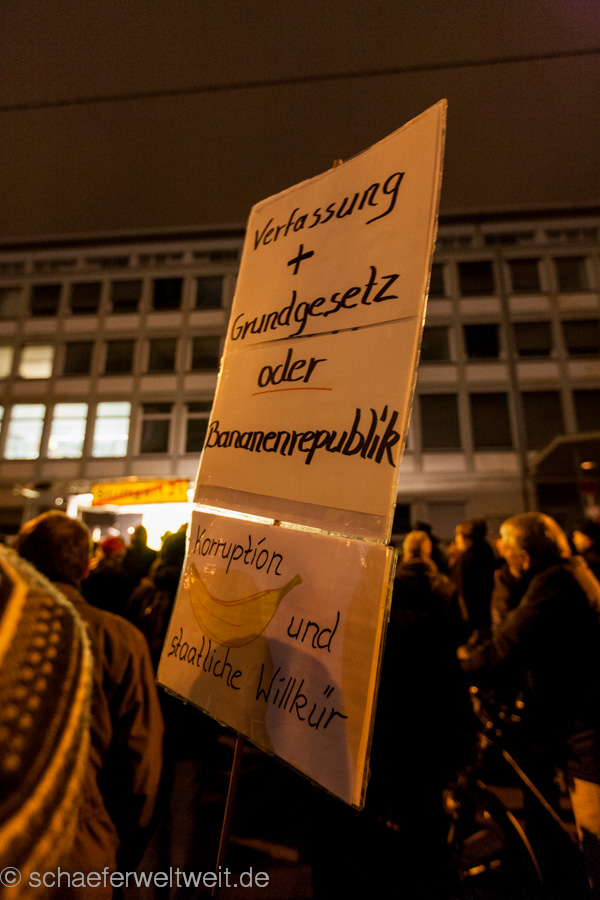 Verfassung
+
Grundgesetz
oder
Bananenrepublik
Korruption
und
staatliche Willkür
© schaeferweltweit.de